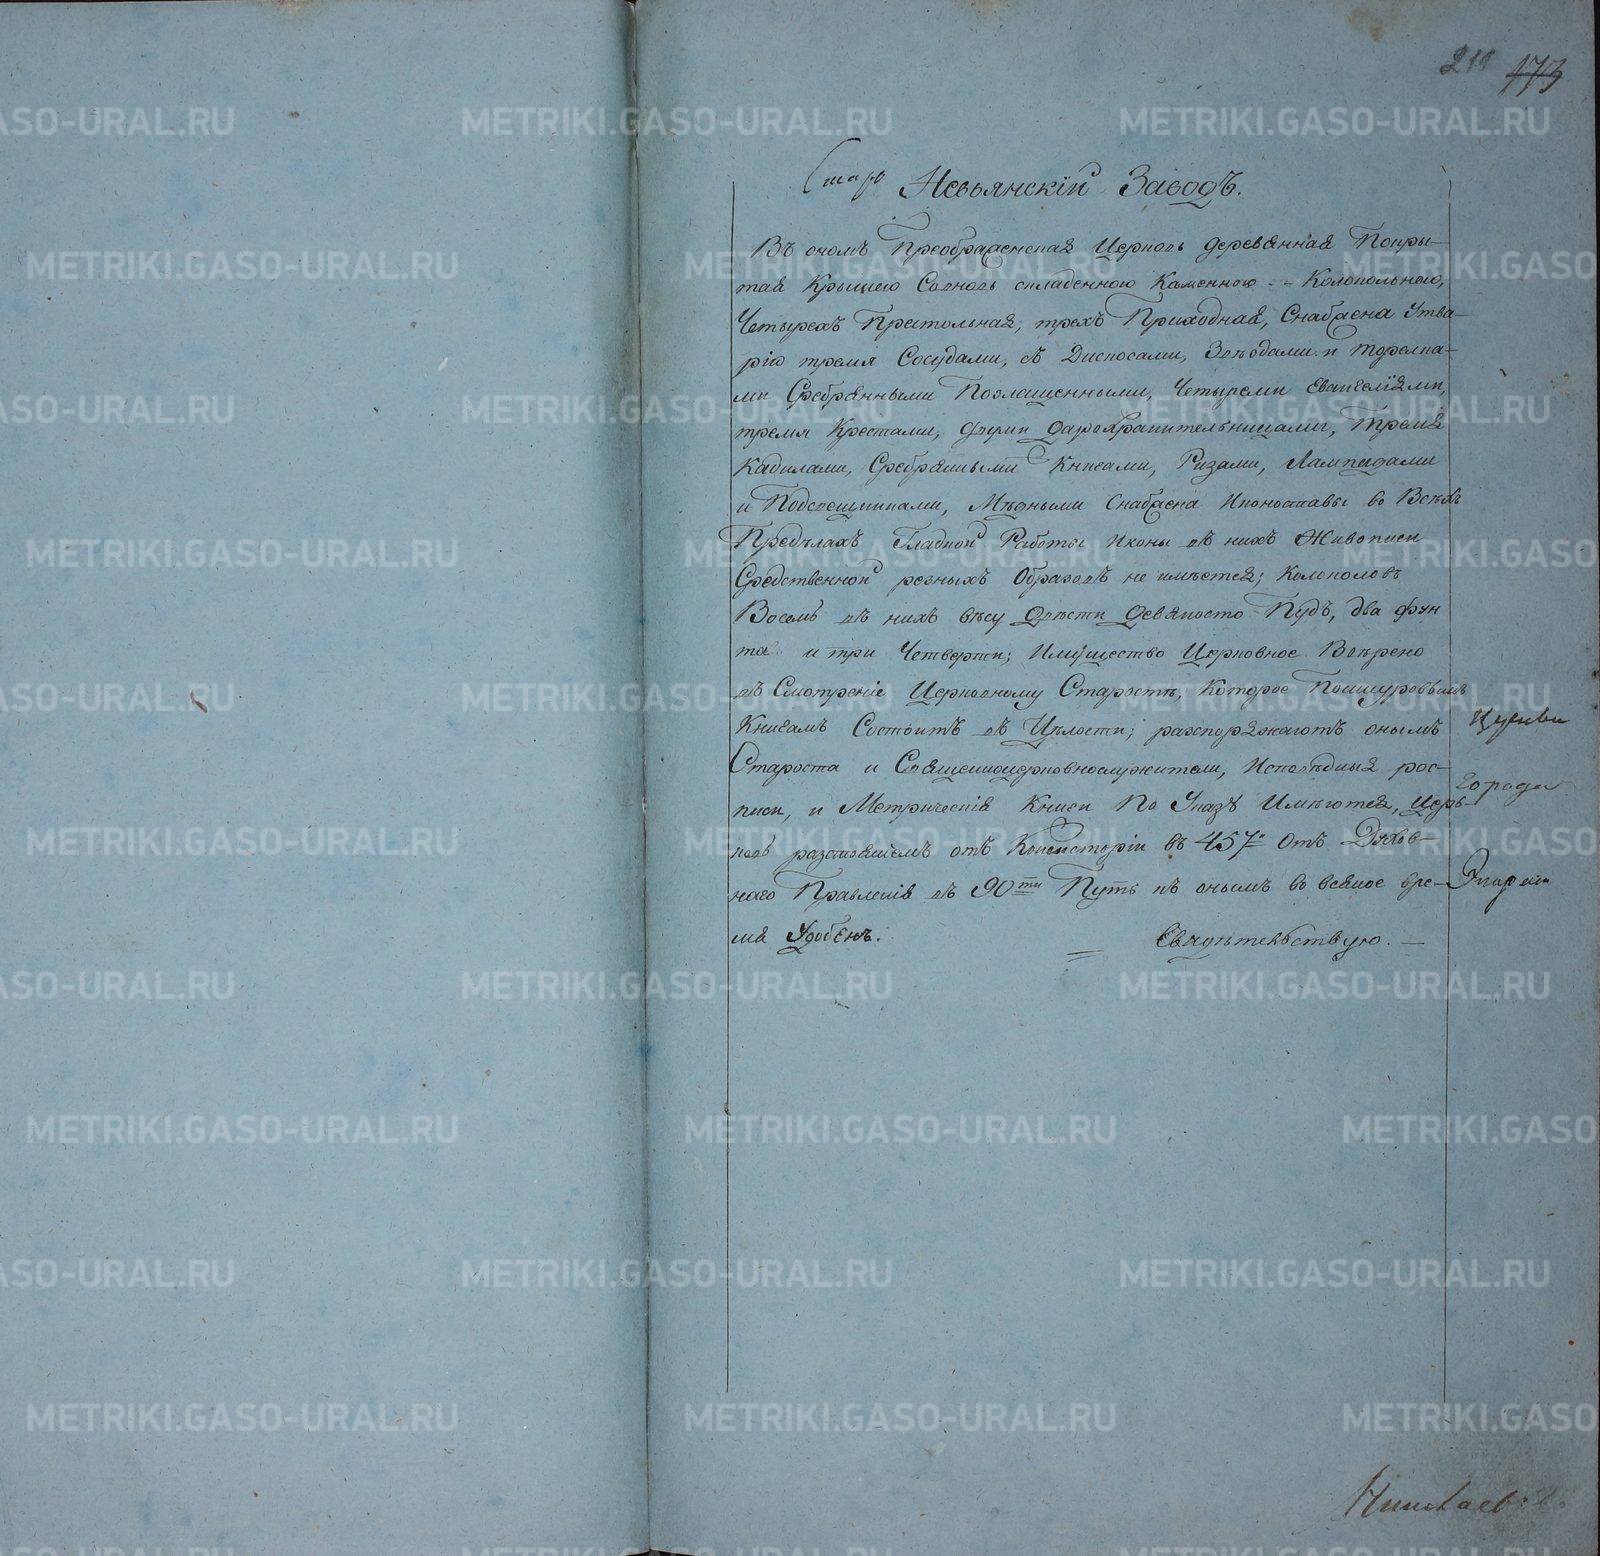 211 173
Старо Невьянскій Заводъ.
Въ ономъ Преображенская Церковь деревянная Покры-
тая Крышею Совновь складенною Каменною - - Колокольнею,
Четырехъ Престольная, трехъ Приходная, Снабжена Утва-
рію тремя Сосудами, съ Дискосами, Звѣздами и торелка-
ми Сребрянными Позлащенными, Четырьми Евангеліями,
тремя Крестами, двумя дарохранительницами, Тремя
Кадилами, Сребряными Книгами, Ризами, Лампадами
и Подсвещниками, Мѣдными Снабжена Иконостасы во Всѣхъ
Предѣлахъ Гладкой Работы Иконы въ нихъ Живописи
Средственной резныхъ Образовъ не имѣется; Колоколовъ
Восемь въ нихъ вѣсу двѣсти девяносто Пудъ, два фун
та и три Четверти; Имущество Церковное Ввѣрено
въ Смотреніе Церковному Старостѣ, Которое Пошнуровымъ
Книгамъ Состоитъ въ Цѣлости; распоряжаютъ онымъ
Староста и Священноцерковнослужители, Исповѣдныя рос-
писи, и Метрическія Книги По Указу Имѣются, Цер-
ковь разстояніемъ отъ Консисторіи въ 457и Отъ Духов-
наго Правленія въ 90ти Путь къ онымъ во всякое вре-
мя Удобенъ. = Свидѣтельствую. —
Церкви
города
METRIKI.GASO-URAL.RU